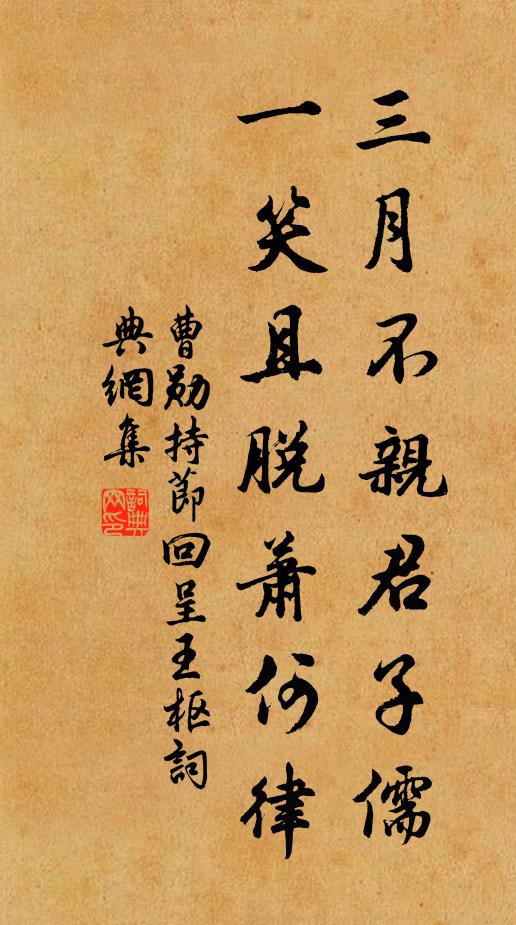 三月不親君子儒
一笑且脫蕭何律
曹勛持節回呈王樞詞
典網集
詞典網印